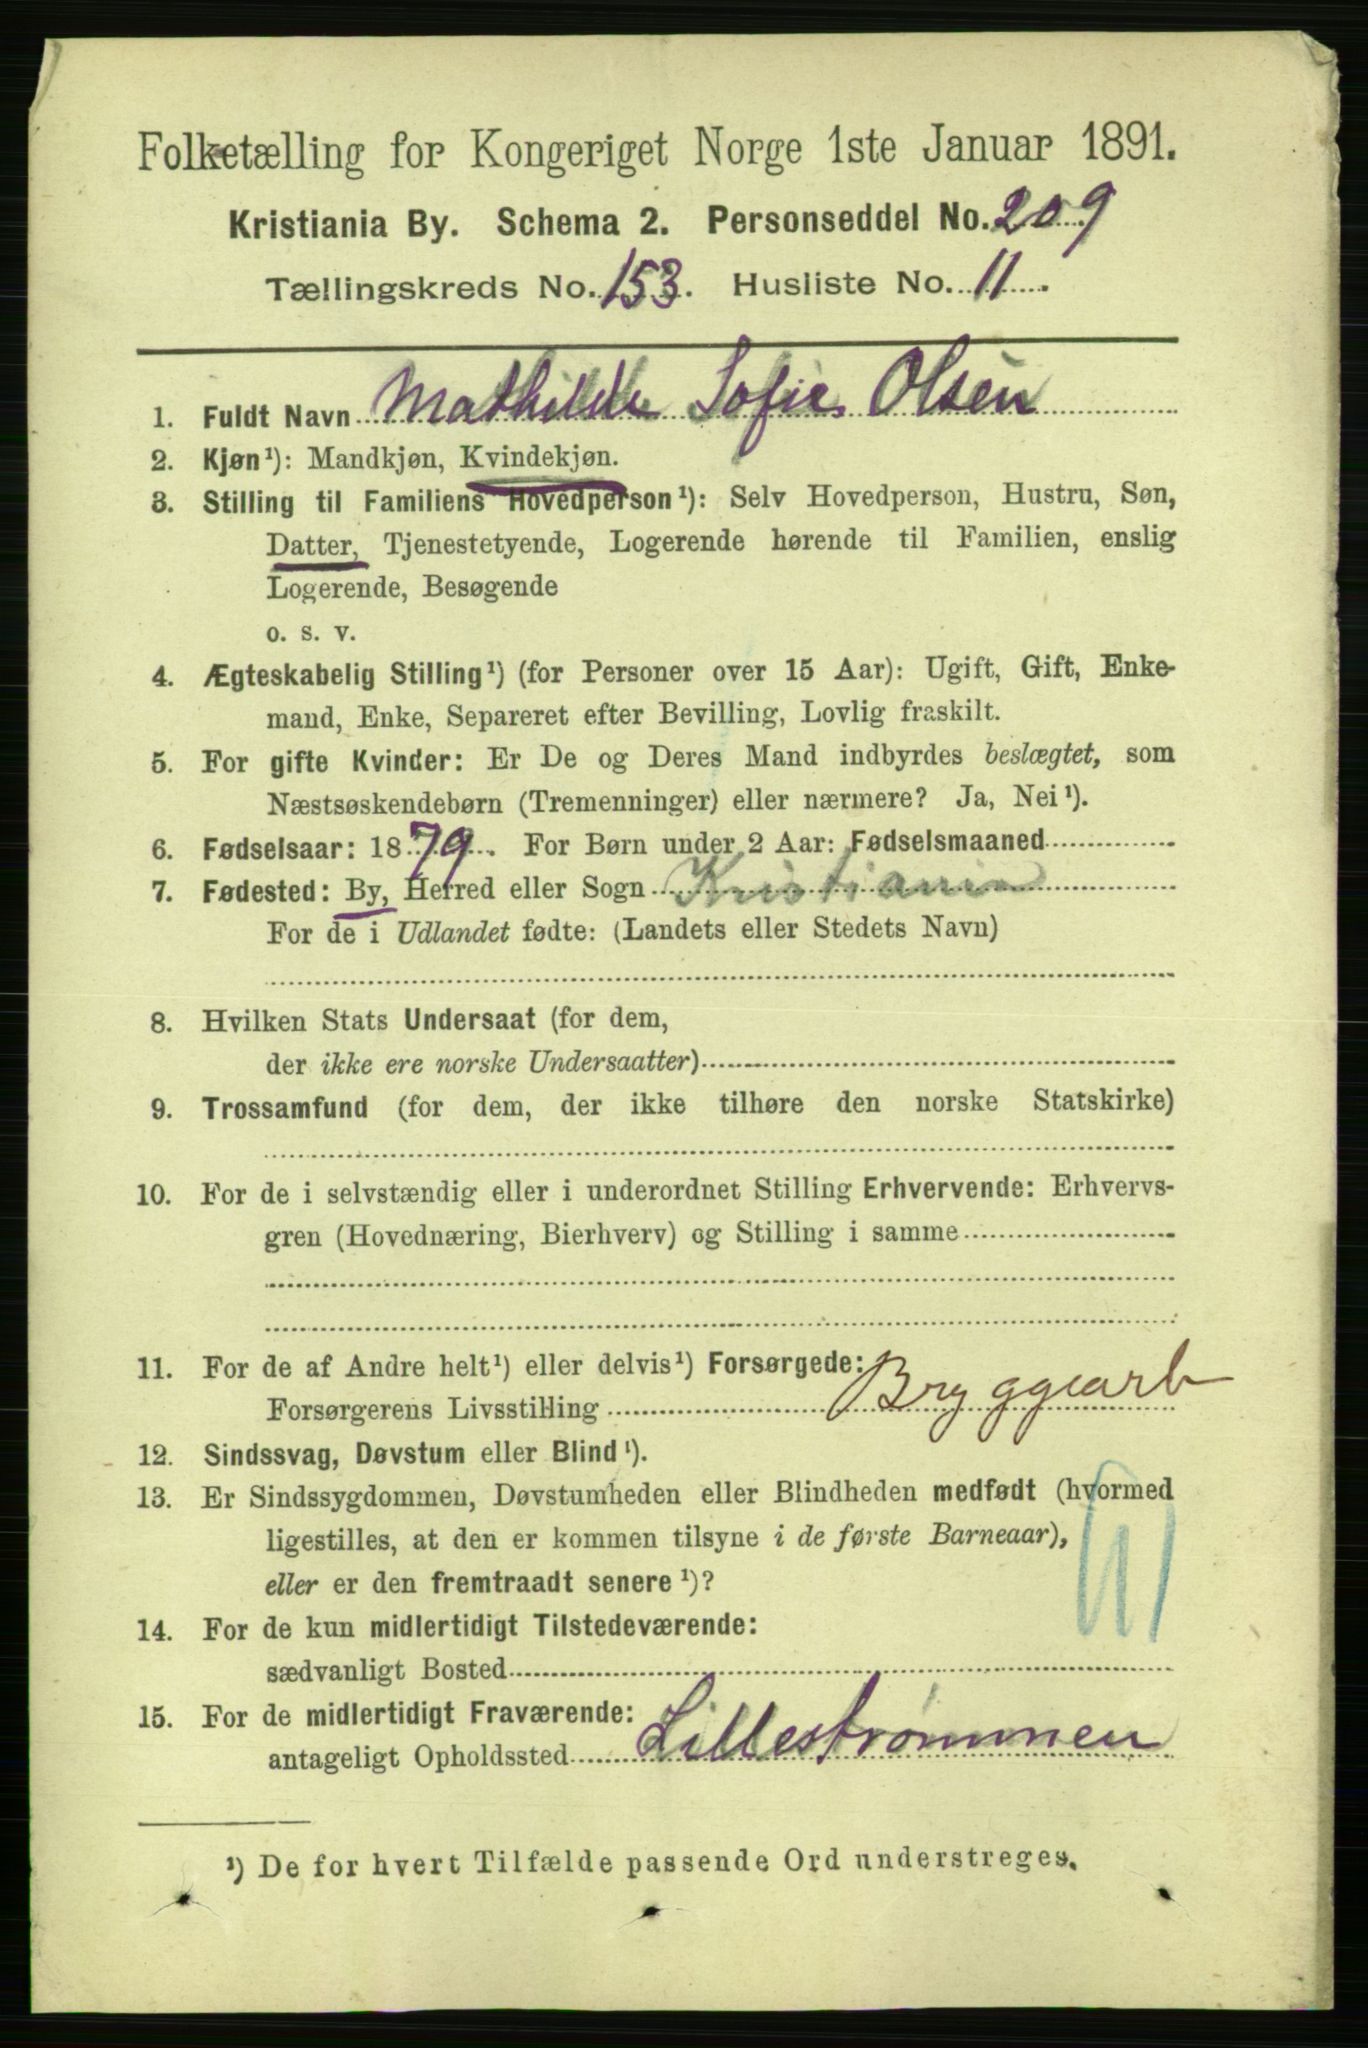 Folketælling for Kongeriget Norge 1ste Januar 1891.
Kristiania By. Schema 2. Personseddel No. 209
Tællingskreds No. 153. Husliste No. 11.
1. Fuldt Navn Mathilde Sofie Olsen
2. Kjøn¹): Mandkjøn, Kvindekjøn.
3. Stilling til Familiens Hovedperson¹): Selv Hovedperson, Hustru, Søn,
Datter, Tjenestetyende, Logerende hørende til Familien, enslig
Logerende, Besøgende
o. s. v.
4. Ægteskabelig Stilling¹) (for Personer over 15 Aar): Ugift, Gift, Enke-
mand, Enke, Separeret efter Bevilling, Lovlig fraskilt.
5. For gifte Kvinder: Er De og Deres Mand indbyrdes beslægtet, som
Næstsøskendebørn (Tremenninger) eller nærmere? Ja, Nei¹).
6. Fødselsaar: 1879. For Børn under 2 Aar: Fødselsmaaned
7. Fødested: By, Herred eller Sogn Kristiania
For de i Udlandet fødte: (Landets eller Stedets Navn)
8. Hvilken Stats Undersaat (for dem,
der ikke ere norske Undersaatter)
9. Trossamfund (for dem, der ikke tilhøre den norske Statskirke)
10. For de i selvstændig eller i underordnet Stilling Erhvervende: Erhvervs-
gren (Hovednæring, Bierhverv) og Stilling i samme
11. For de af Andre helt¹) eller delvis¹) Forsørgede:
Forsørgerens Livsstilling Bryggearb
12. Sindssvag, Døvstum eller Blind¹).
13. Er Sindssygdommen, Døvstumheden eller Blindheden medfødt (hvormed
ligestilles, at den er kommen tilsyne i de første Barneaar),
eller er den fremtraadt senere¹)?
14. For de kun midlertidigt Tilstedeværende:
sædvanligt Bosted
15. For de midlertidigt Fraværende:
antageligt Opholdssted Lillestrømmen
¹) De for hvert Tilfælde passende Ord understreges.